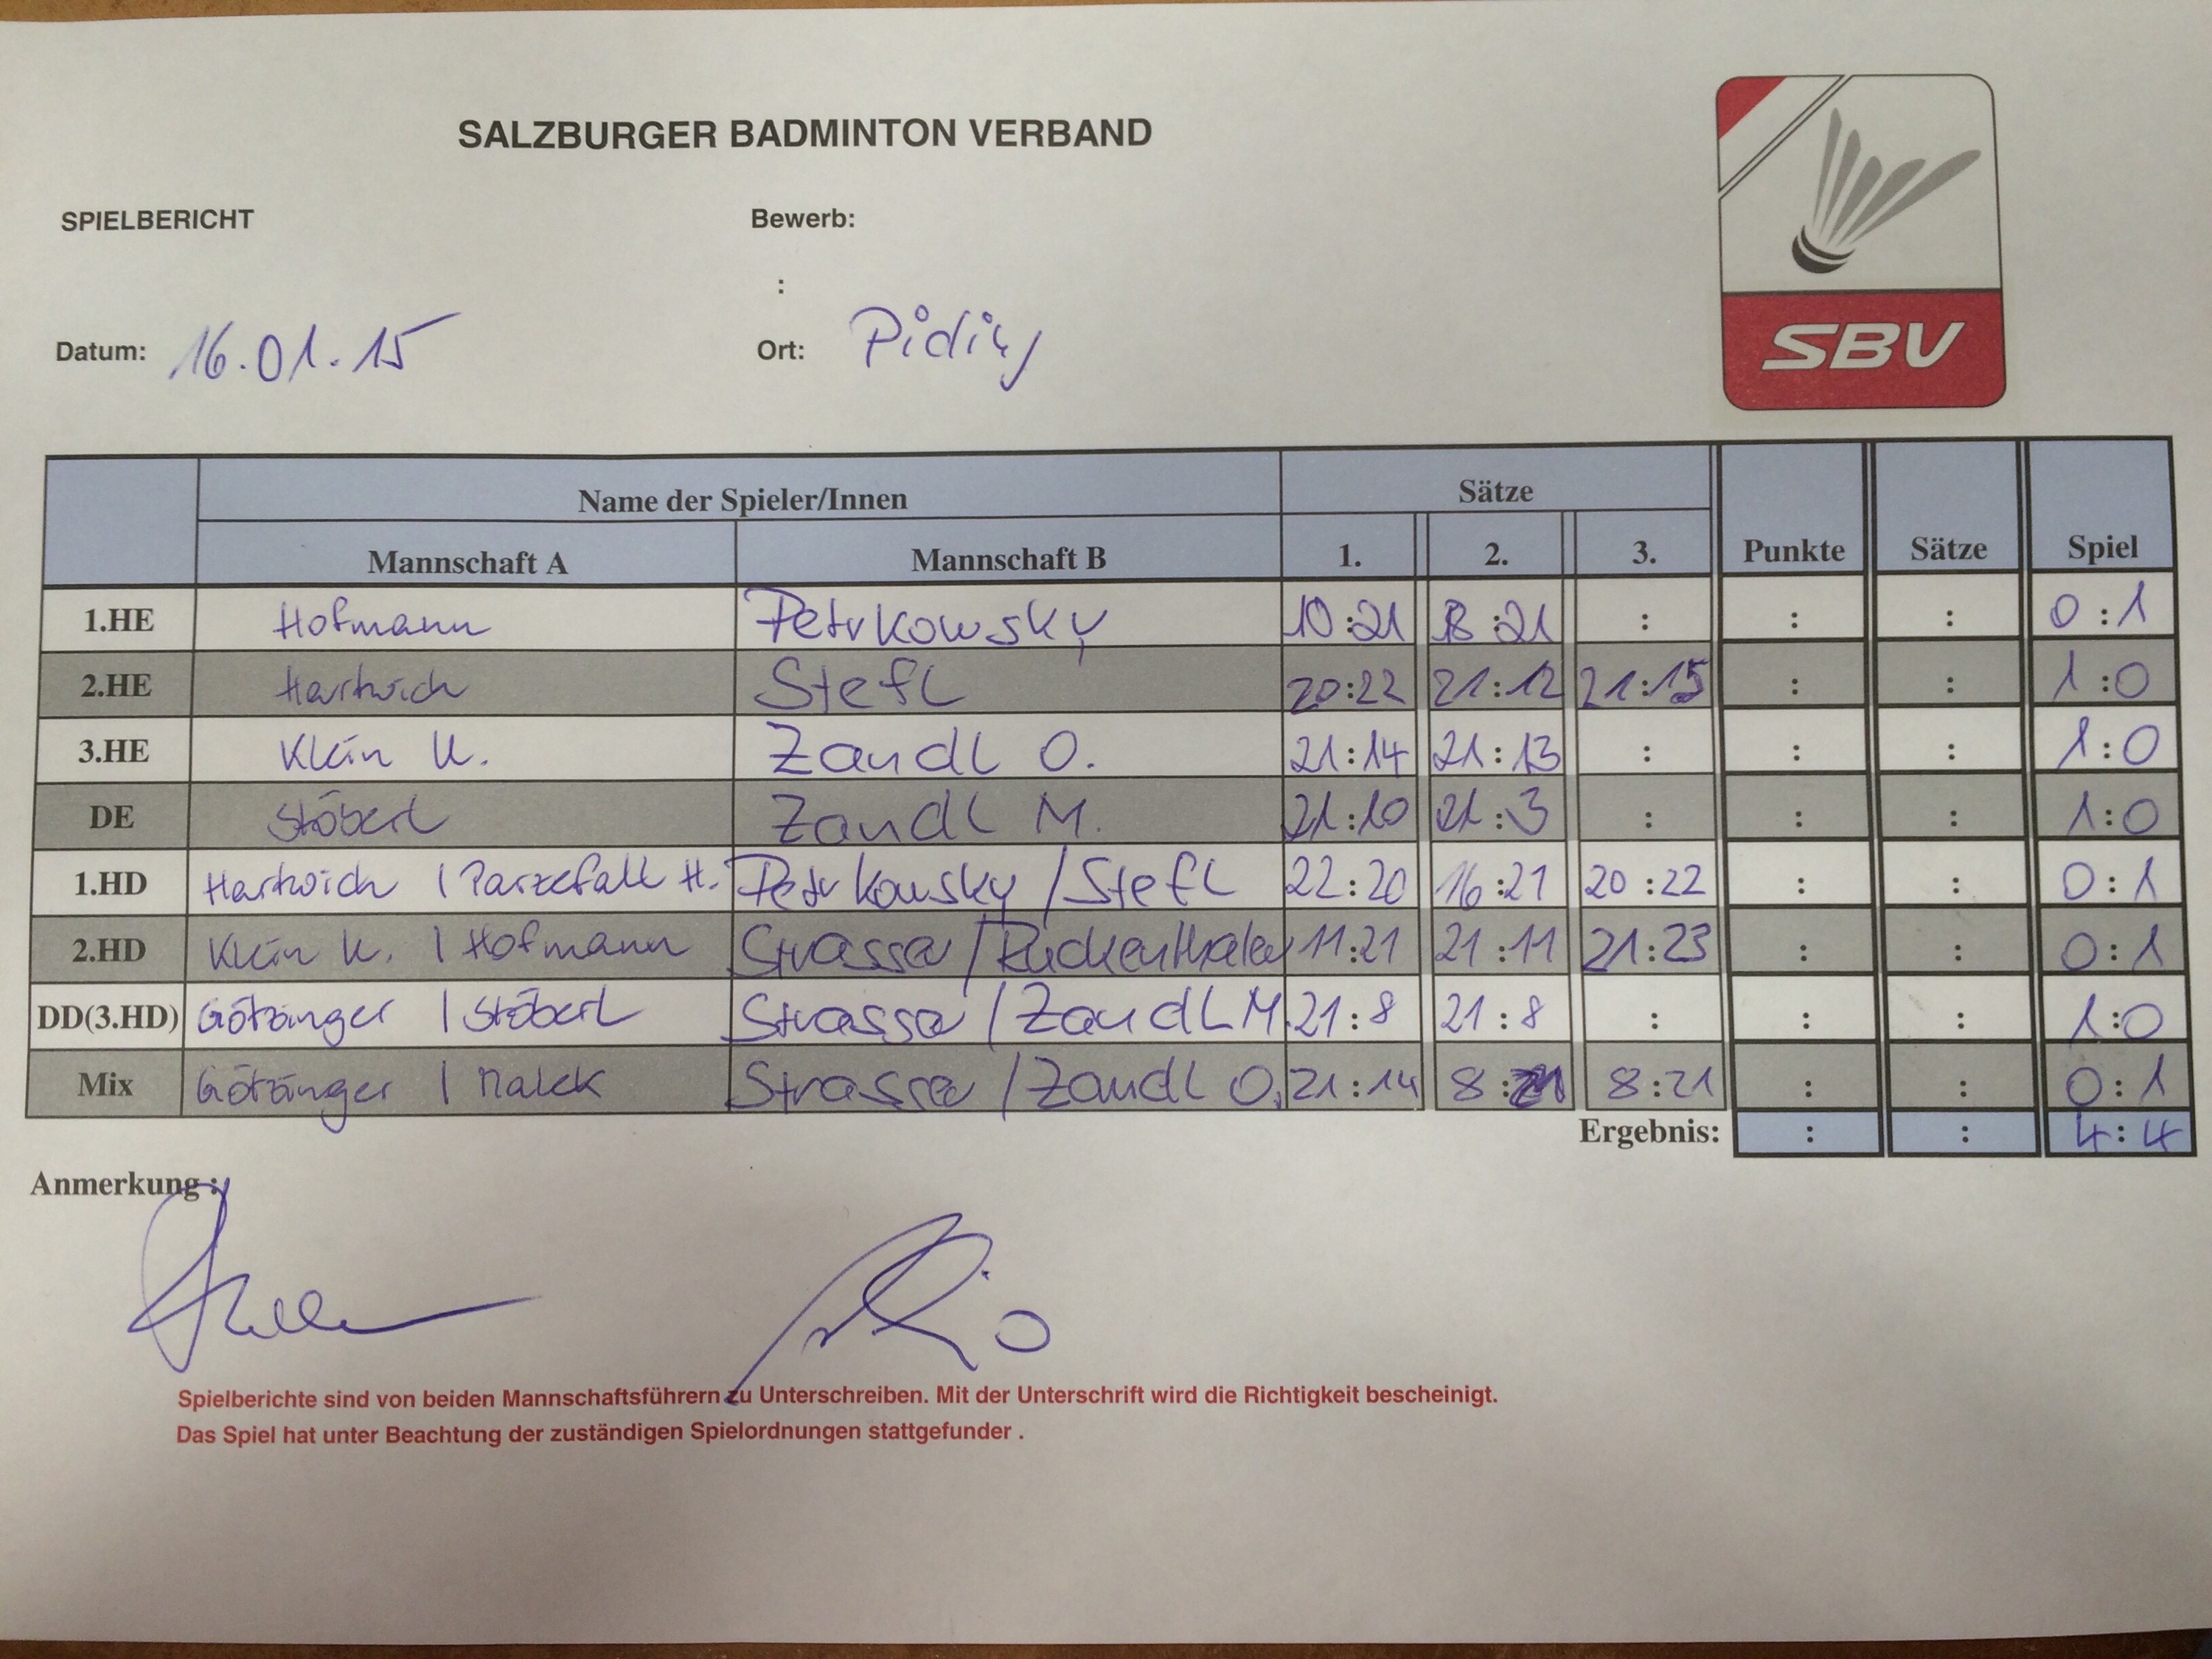 SALZBURGER BADMINTON VERBAND
SPIELBERICHT Bewerb:
:
Datum: 16.01.15 Ort: Piding
SBV
Name der Spieler/Innen Sätze
Mannschaft A Mannschaft B 1. 2. 3. Punkte Sätze Spiel
1.HE Hofmann Petrkowsky 10:21 :21 : : : 0:1
2.HE Hartwich Stefl 20:22 21:12 21:15 : : 1:0
3.HE Klein K. Zandl O. 21:14 21:13 : : : 1:0
DE Stöberl Zandl M. 21:10 21:3 : : : 1:0
1.HD Hartwich / Parzefall H. Petrkowsky / Stefl 22:20 16:21 20:22 : : 0:1
2.HD Klein K. / Hofmann Strasser / Ruckenthaler 11:21 21:11 21:23 : : 0:1
DD(3.HD) Götzinger / Stöberl Strasser / Zandl M. 21:8 21:8 : : : 1:0
Mix Götzinger / Malek Strasser / Zandl O. 21:14 8:21 8:21 : : 0:1
Ergebnis: : : 4:4
Anmerkung :
Spielberichte sind von beiden Mannschaftsführern zu Unterschreiben. Mit der Unterschrift wird die Richtigkeit bescheinigt.
Das Spiel hat unter Beachtung der zuständigen Spielordnungen stattgefunder .